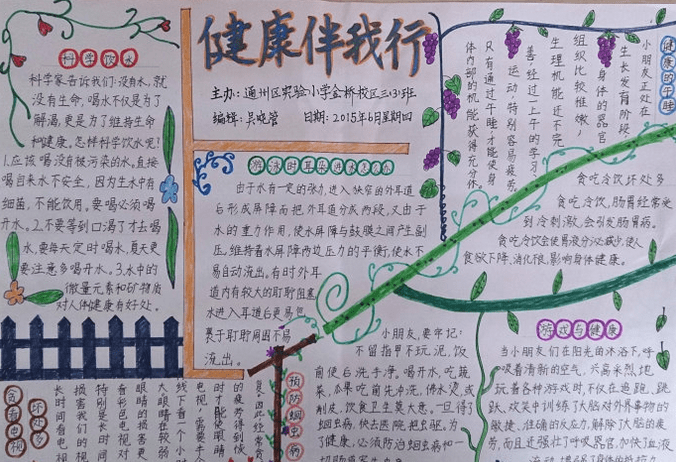 健康伴我行
主办：通州区实验小学金桥校区三(3)班
编辑：吴晓管 日期：2015年6月星期四
科学饮水
科学家告诉我们:没有水,就
没有生命。喝水不仅是为了
解渴,更是为了维持生命
和健康。怎样科学饮水呢?
1.应该喝没有被污染的水。直接
喝自来水不安全,因为生水中有
细菌,不能饮用。要喝必须喝
开水。2.不要等到口渴了才去喝
水,要每天定时喝水,夏天更
要注意多喝开水。3.水中的
微量元素和矿物质
对人体健康有好处。
游泳时耳朵进水怎么办
由于水有一定的张力,进入狭窄的外耳道
后形成屏障而把外耳道分成两段,又由于
水的重力作用,使水屏障与鼓膜之间产生副
压,维持着水屏障两边压力的平衡,使水不
易自动流出。有时外耳
道内有较大的耵聍阻塞
水进入耳道后更易包
裹于耵聍周围不易
流出。
健康的午睡
小朋友正处在
生长发育阶段,
身体的器官
组织比较稚嫩,
生理机能还不完
善,经过一上午的学习、
运动,特别容易疲劳,
只有通过午睡才能使身
体内部的机能获得充分休
贪吃冷饮坏处多
贪吃冷饮,肠胃经常受
到冷刺激,会引发肠胃病。
贪吃冷饮会使胃液分泌减少,使人
食欲下降,消化很,影响身体健康。
游戏与健康
当小朋友们在阳光的沐浴下,呼
吸着清新的空气,兴高采烈地
玩着各种游戏时,不仅在追跑、跳
跃、欢笑中训练了大脑对外界事物的
敏捷、准确的反应力,解除了大脑的疲
劳,而且还强壮了呼吸器官,加快了血液
预防蛔虫病
小朋友,要牢记:
不留指甲不玩泥,饭
前便后洗手净。喝开水,吃蔬
菜,瓜果吃前先冲洗,沸水烫,或
削皮,饮食卫生莫大意。一旦得了
蛔虫病,快去医院把虫驱。为
了健康,必须防治蛔虫病和一
贪看电视
坏处多
长时间看电视
损害我们的视
特别是长时间
看彩色电视对
眼睛的损害更
大眼睛在较弱
线下看一个小时
电视,需要半个
时才能使眼睛
的疲劳得到恢
复,因此经常贪